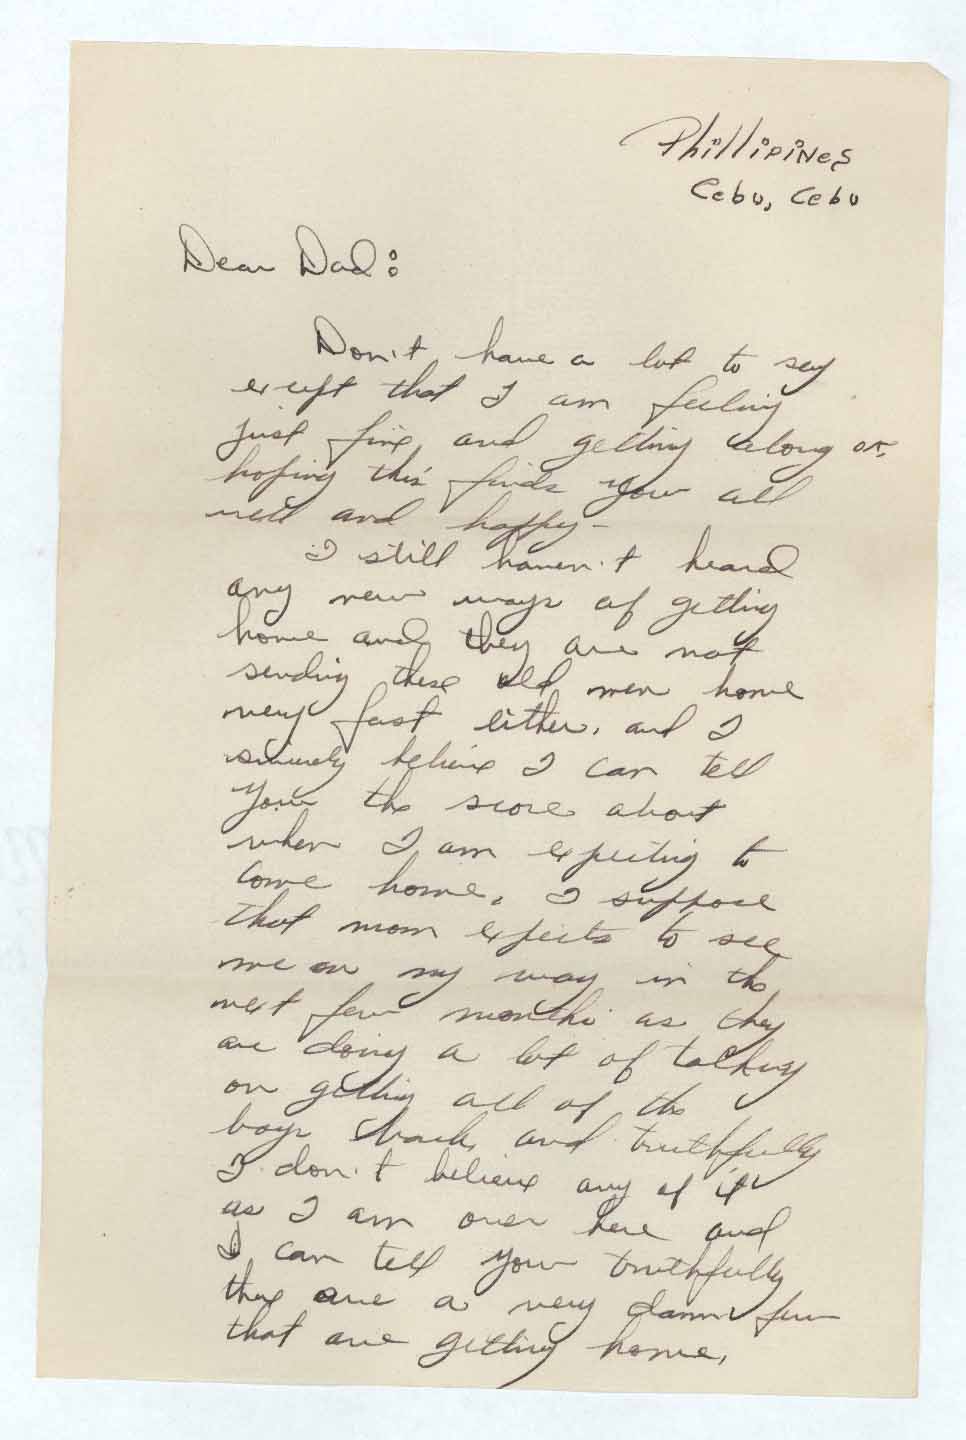 Phillipines
Cebu, Cebu
Dear Dad:
Don't have a lot to say
except that I am feeling
just fine, and getting along ok,
hoping this finds you all
well and happy-
I still haven't heard
any new ways of getting
home and they are not
sending these old men home
very fast either. and I
sincerely believe I can tell
you the score about
when I am expecting to
come home. I suppose
that mom expects to see
me on my way in the
next few months as they
are doing a lot of talking
on getting all of the
boys back, and truthfully
I don't believe any of it
as I am over here and
I can tell you truthfully
there are a very damn few
that are getting home.